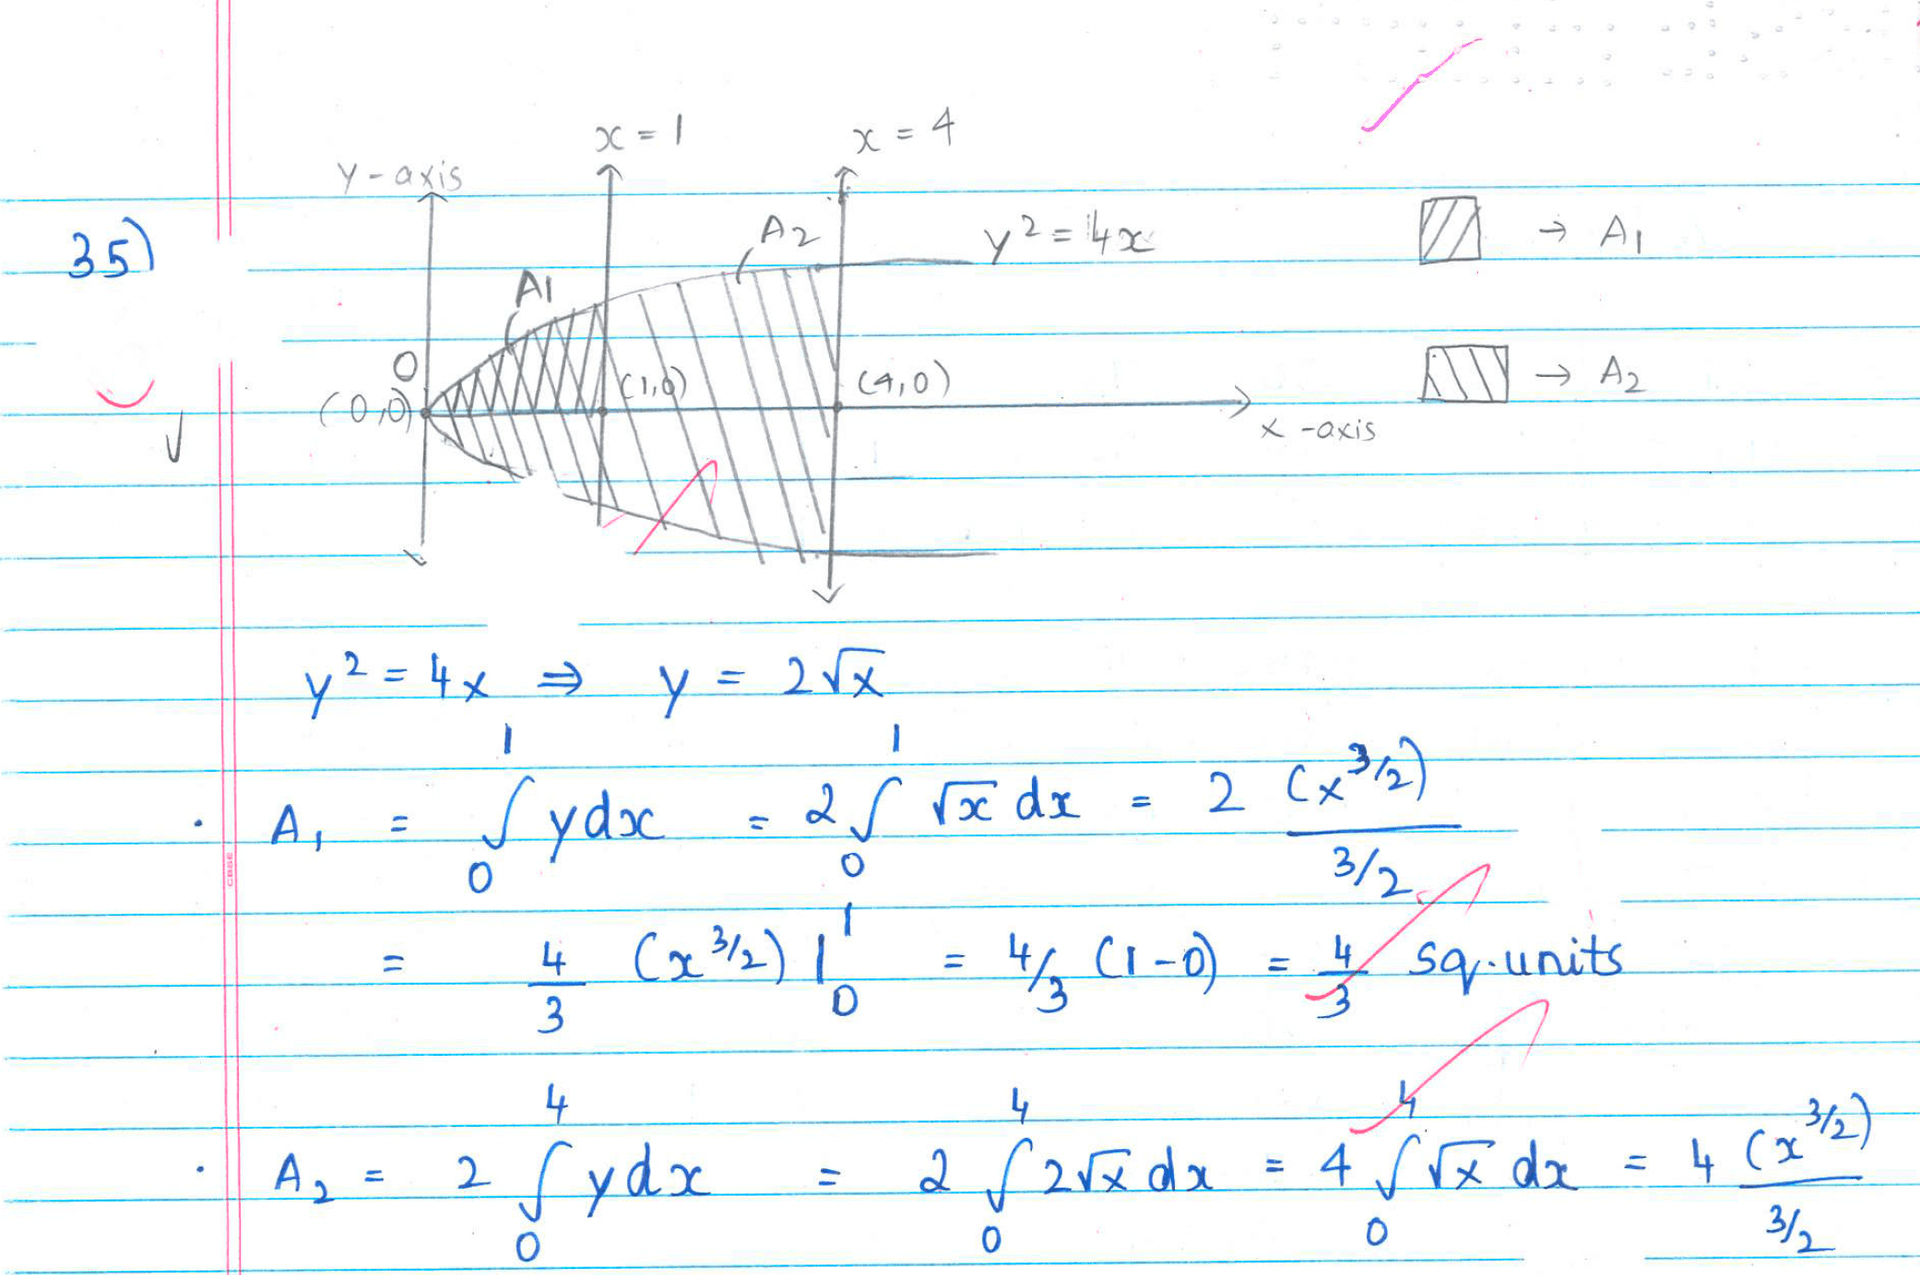 x = 1
x = 4
y-axis
35)
A2
y² = 4x
→ A1
A1
O
(0,0)
(1,0)
(4,0)
→ A2
x-axis
y² = 4x ⇒ y = 2√x
· A₁ = ∫₀¹ y dx = 2 ∫₀¹ √x dx = 2 (x^3/2) / 3/2
= 4/3 (x^3/2) |₀¹ = 4/3 (1-0) = 4/3 sq.units
· A₂ = 2 ∫₀⁴ y dx = 2 ∫₀⁴ 2√x dx = 4 ∫₀⁴ √x dx = 4 (x^3/2) / 3/2
CBSE